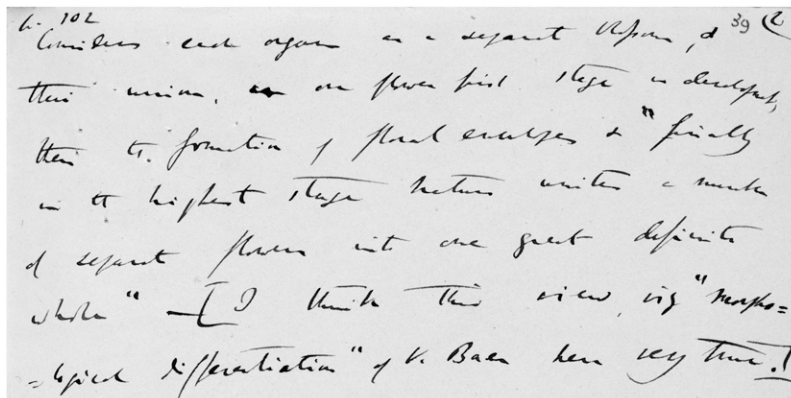 p. 102 39 (2
Considers each organ as a separate blossom, &
their union, in one flower first stage in developt,
then the formation of floral envelopes & "finally
in the highest stage Nature unites a number
of separate flowers into one great definite
whole" — [I think this view, viz "morpho=
=logical differentiation" of V. Baer here very true.]